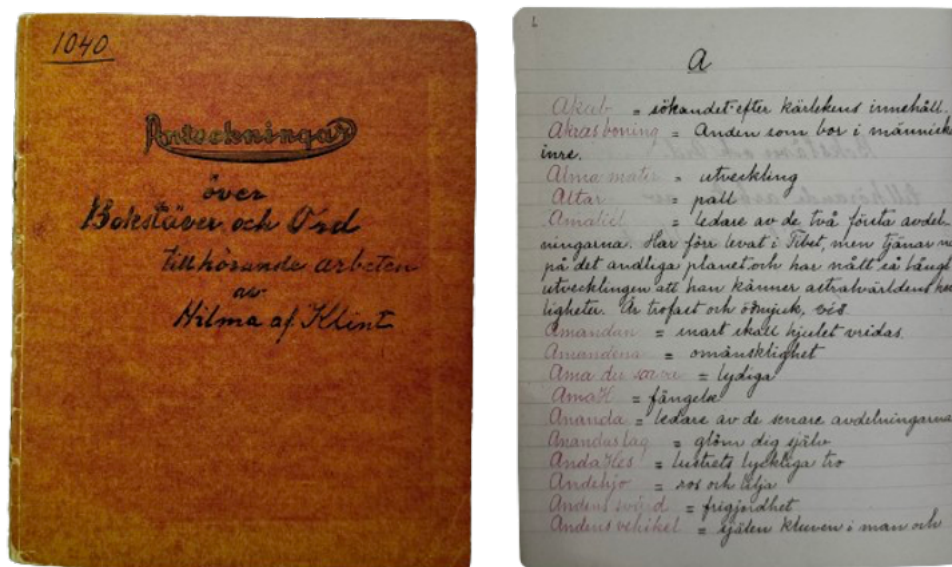 1040
Anteckningar
över
Bokstäver och Ord
tillhörande arbeten
av
Hilma af Klint
1
A
Akab = sökandet efter kärlekens innehåll.
Akrasboning = Anden som bor i människ
inre.
Alma mater = utveckling
Altar = pall
Amaliel = ledare av de två första avdel-
ningarna. Har förr levat i Tibet, men tjänar n
på det andliga planet och har nått så långt
utvecklingen att han känner astralvärldens he
ligheter. Är trofast och ödmjuk, vis.
Amandan = snart skall hjulet vridas.
Amandena = omänsklighet
Ama du sarva = lydiga
AmaH = fängelse
Ananda = ledare av de senare avdelningarna
Anandas lag = glöm dig själv
AndaHes = lustrets lyckliga tro
Andehjo = ros och lilja
Andens svärd = frigjordhet
Andens vehikel = själen kluven i man och